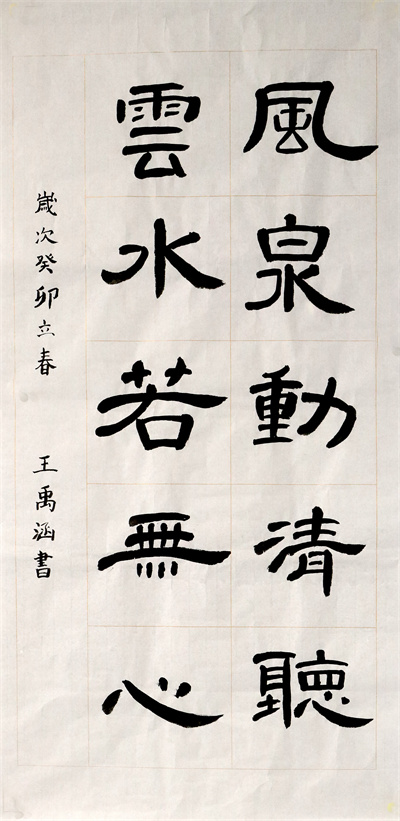 風泉動清聽
雲水若無心
歲次癸卯立春 王禹涵書